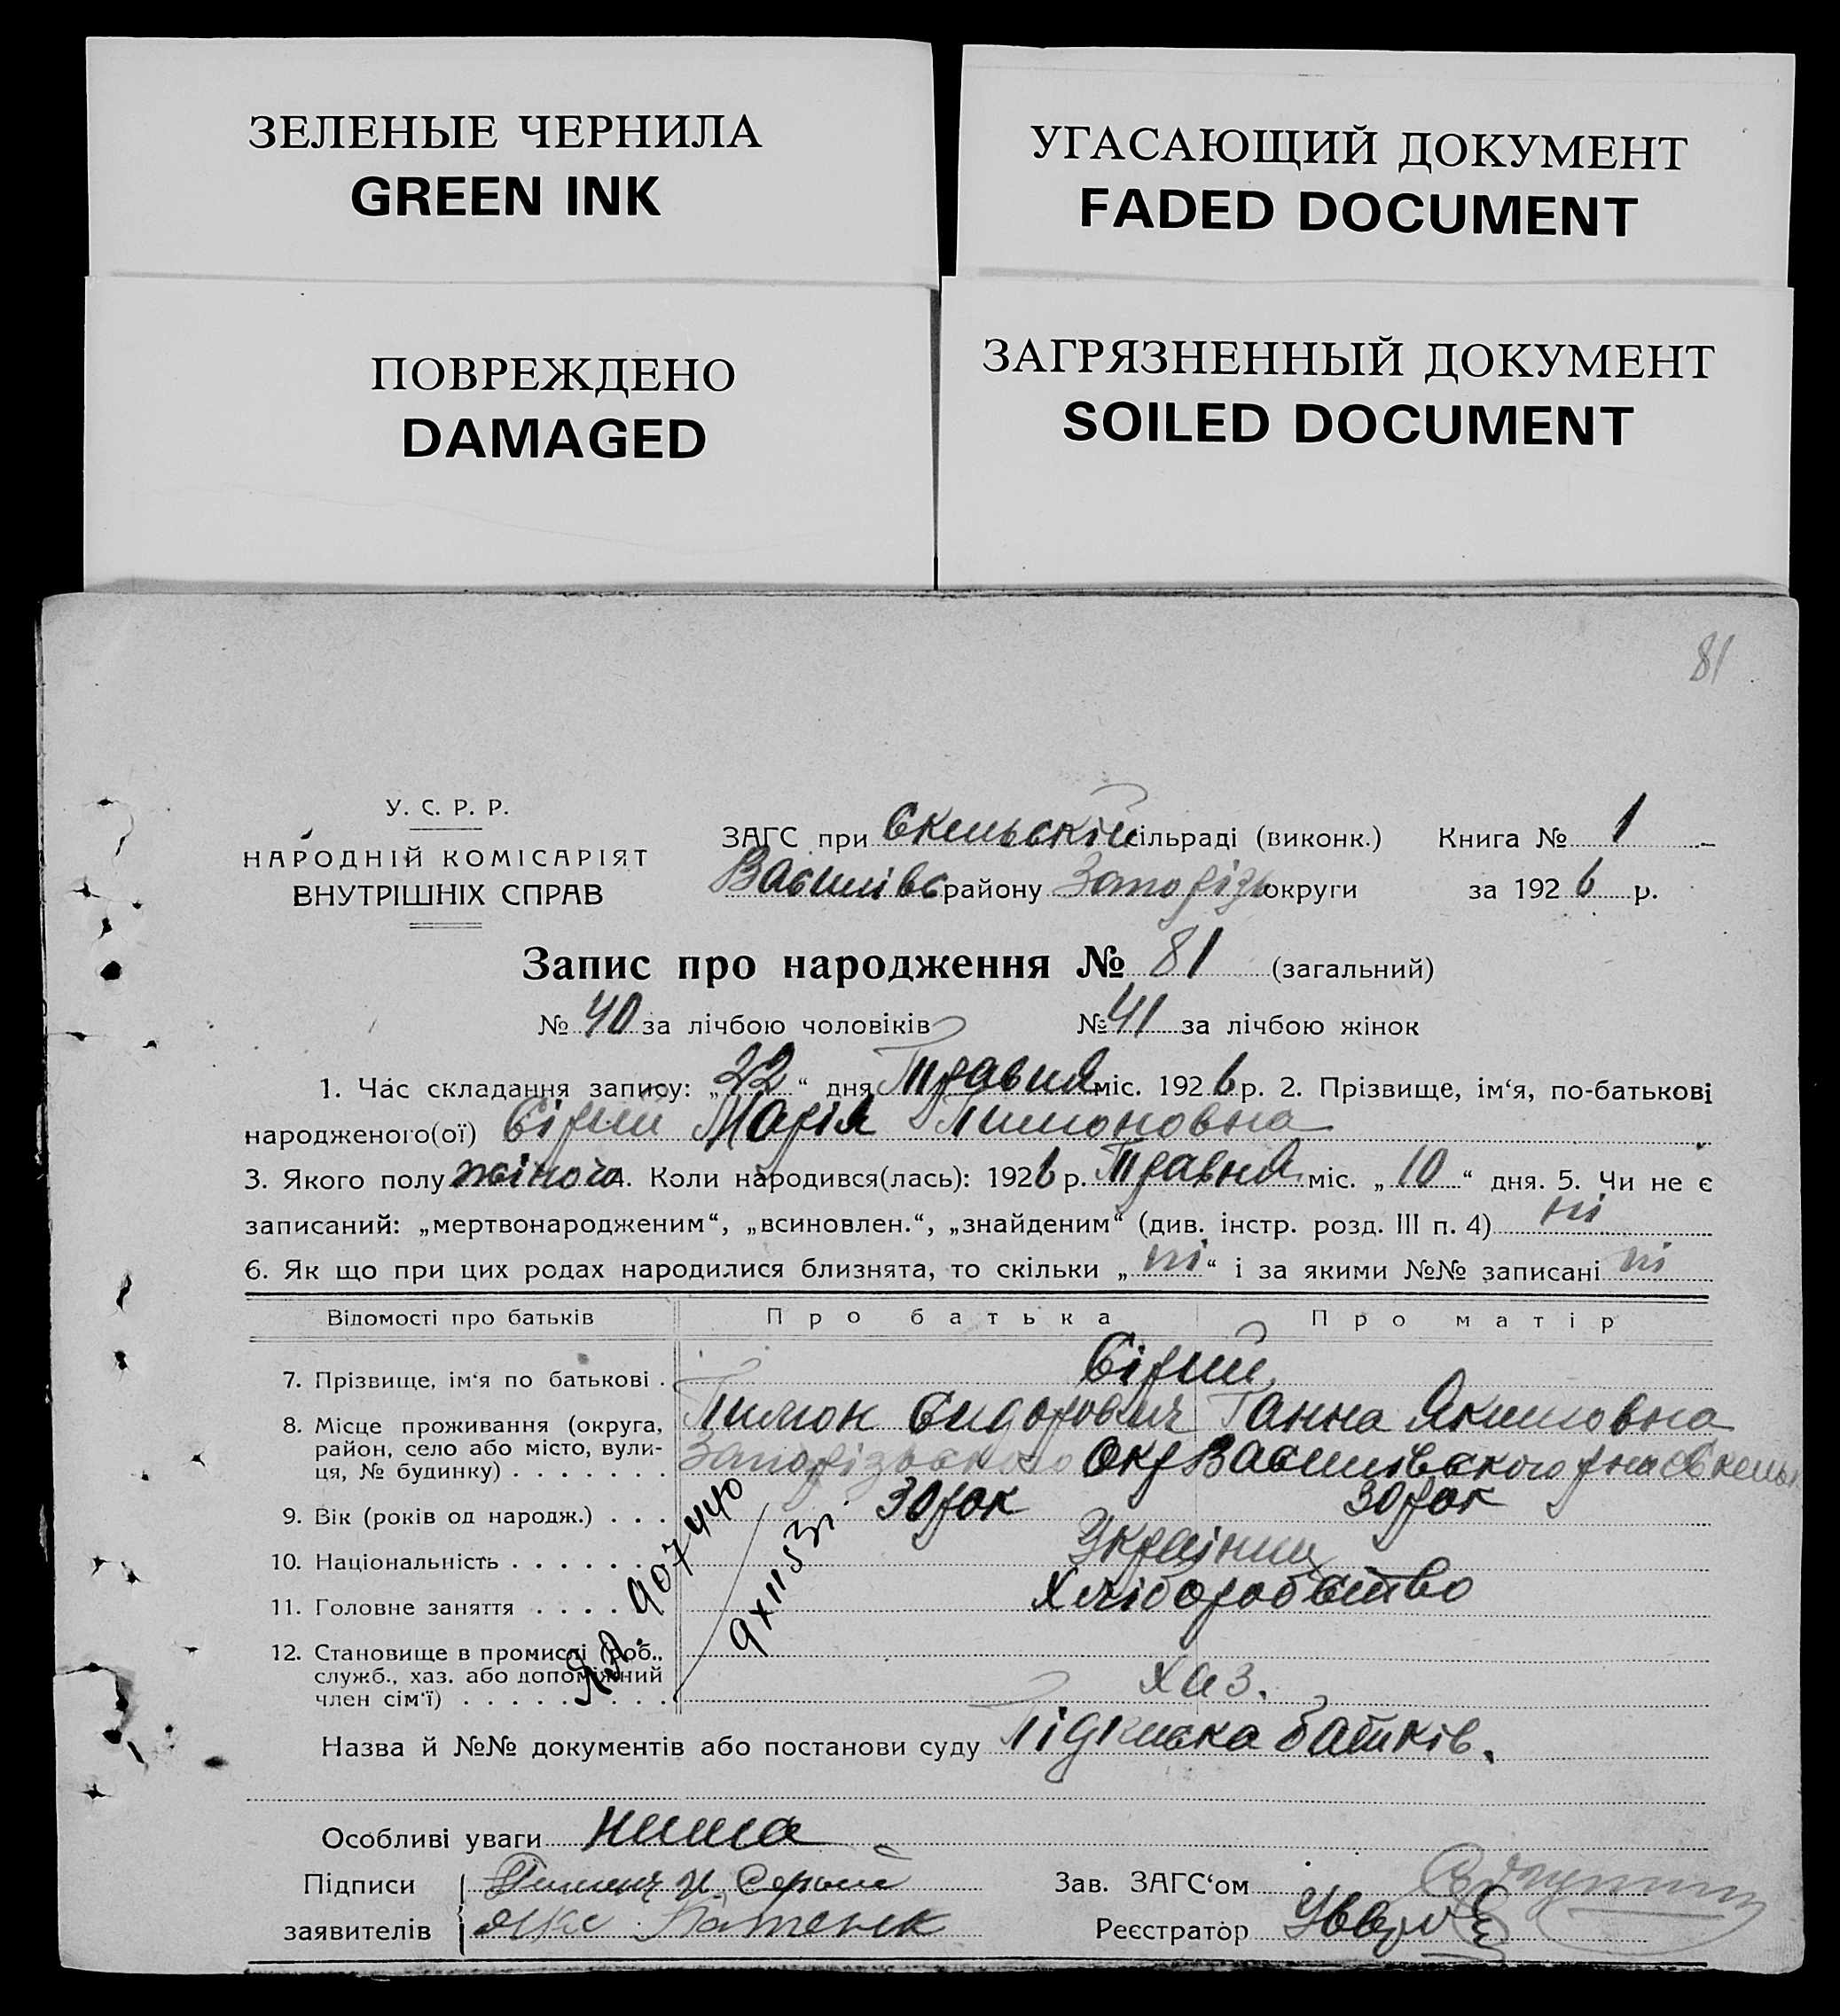 ЗЕЛЕНЫЕ ЧЕРНИЛА
GREEN INK
УГАСАЮЩИЙ ДОКУМЕНТ
FADED DOCUMENT
ПОВРЕЖДЕНО
DAMAGED
ЗАГРЯЗНЕННЫЙ ДОКУМЕНТ
SOILED DOCUMENT
81
У. С. Р. Р.
НАРОДНІЙ КОМІСАРІЯТ
ВНУТРІШНІХ СПРАВ
ЗАГС при Скельській сільраді (виконк.) Книга № 1
Василівс району Запоріз округи за 1926 р.
Запис про народження № 81 (загальний)
№ 40 за лічбою чоловіків № 41 за лічбою жінок
1. Час складання запису: „22“ дня Травня міс. 1926 р. 2. Прізвище, ім‘я, по-батькові
народженого(ої) Сірий Марія Тимоновна
3. Якого полу жіночо 4. Коли народився(лась): 1926 р. Травня міс. „10“ дня. 5. Чи не є
записаний: „мертвонародженим“, „всиновлен.“, „знайденим“ (див. інстр. розд. III п. 4) ні
6. Як що при цих родах народилися близнята, то скільки „ні“ і за якими №№ записані ні
Відомості про батьків Про батька Про матір
7. Прізвище, ім‘я по батькові . Сірий
8. Місце проживання (округа, район, село або місто, вулиця, № будинку) . . . . . . . Тимон Сидорович Ганна Якимовна
Запорізького Окр Василівського рна с Скельк
9. Вік (років од народж.) . . . 30 рок 30 рок
10. Національність . . . . . . Українці
11. Головне заняття . . . . Хліборобство
12. Становище в промислі (роб., служб., хаз. або допоміжний член сім‘ї) . . . . . . . . . хаз.
907440
9 XII 53г.
Назва й №№ документів або постанови суду Підписка батьків.
Особливі уваги Нима
Підписи
заявителів
Зав. ЗАГС‘ом
Реєстратор